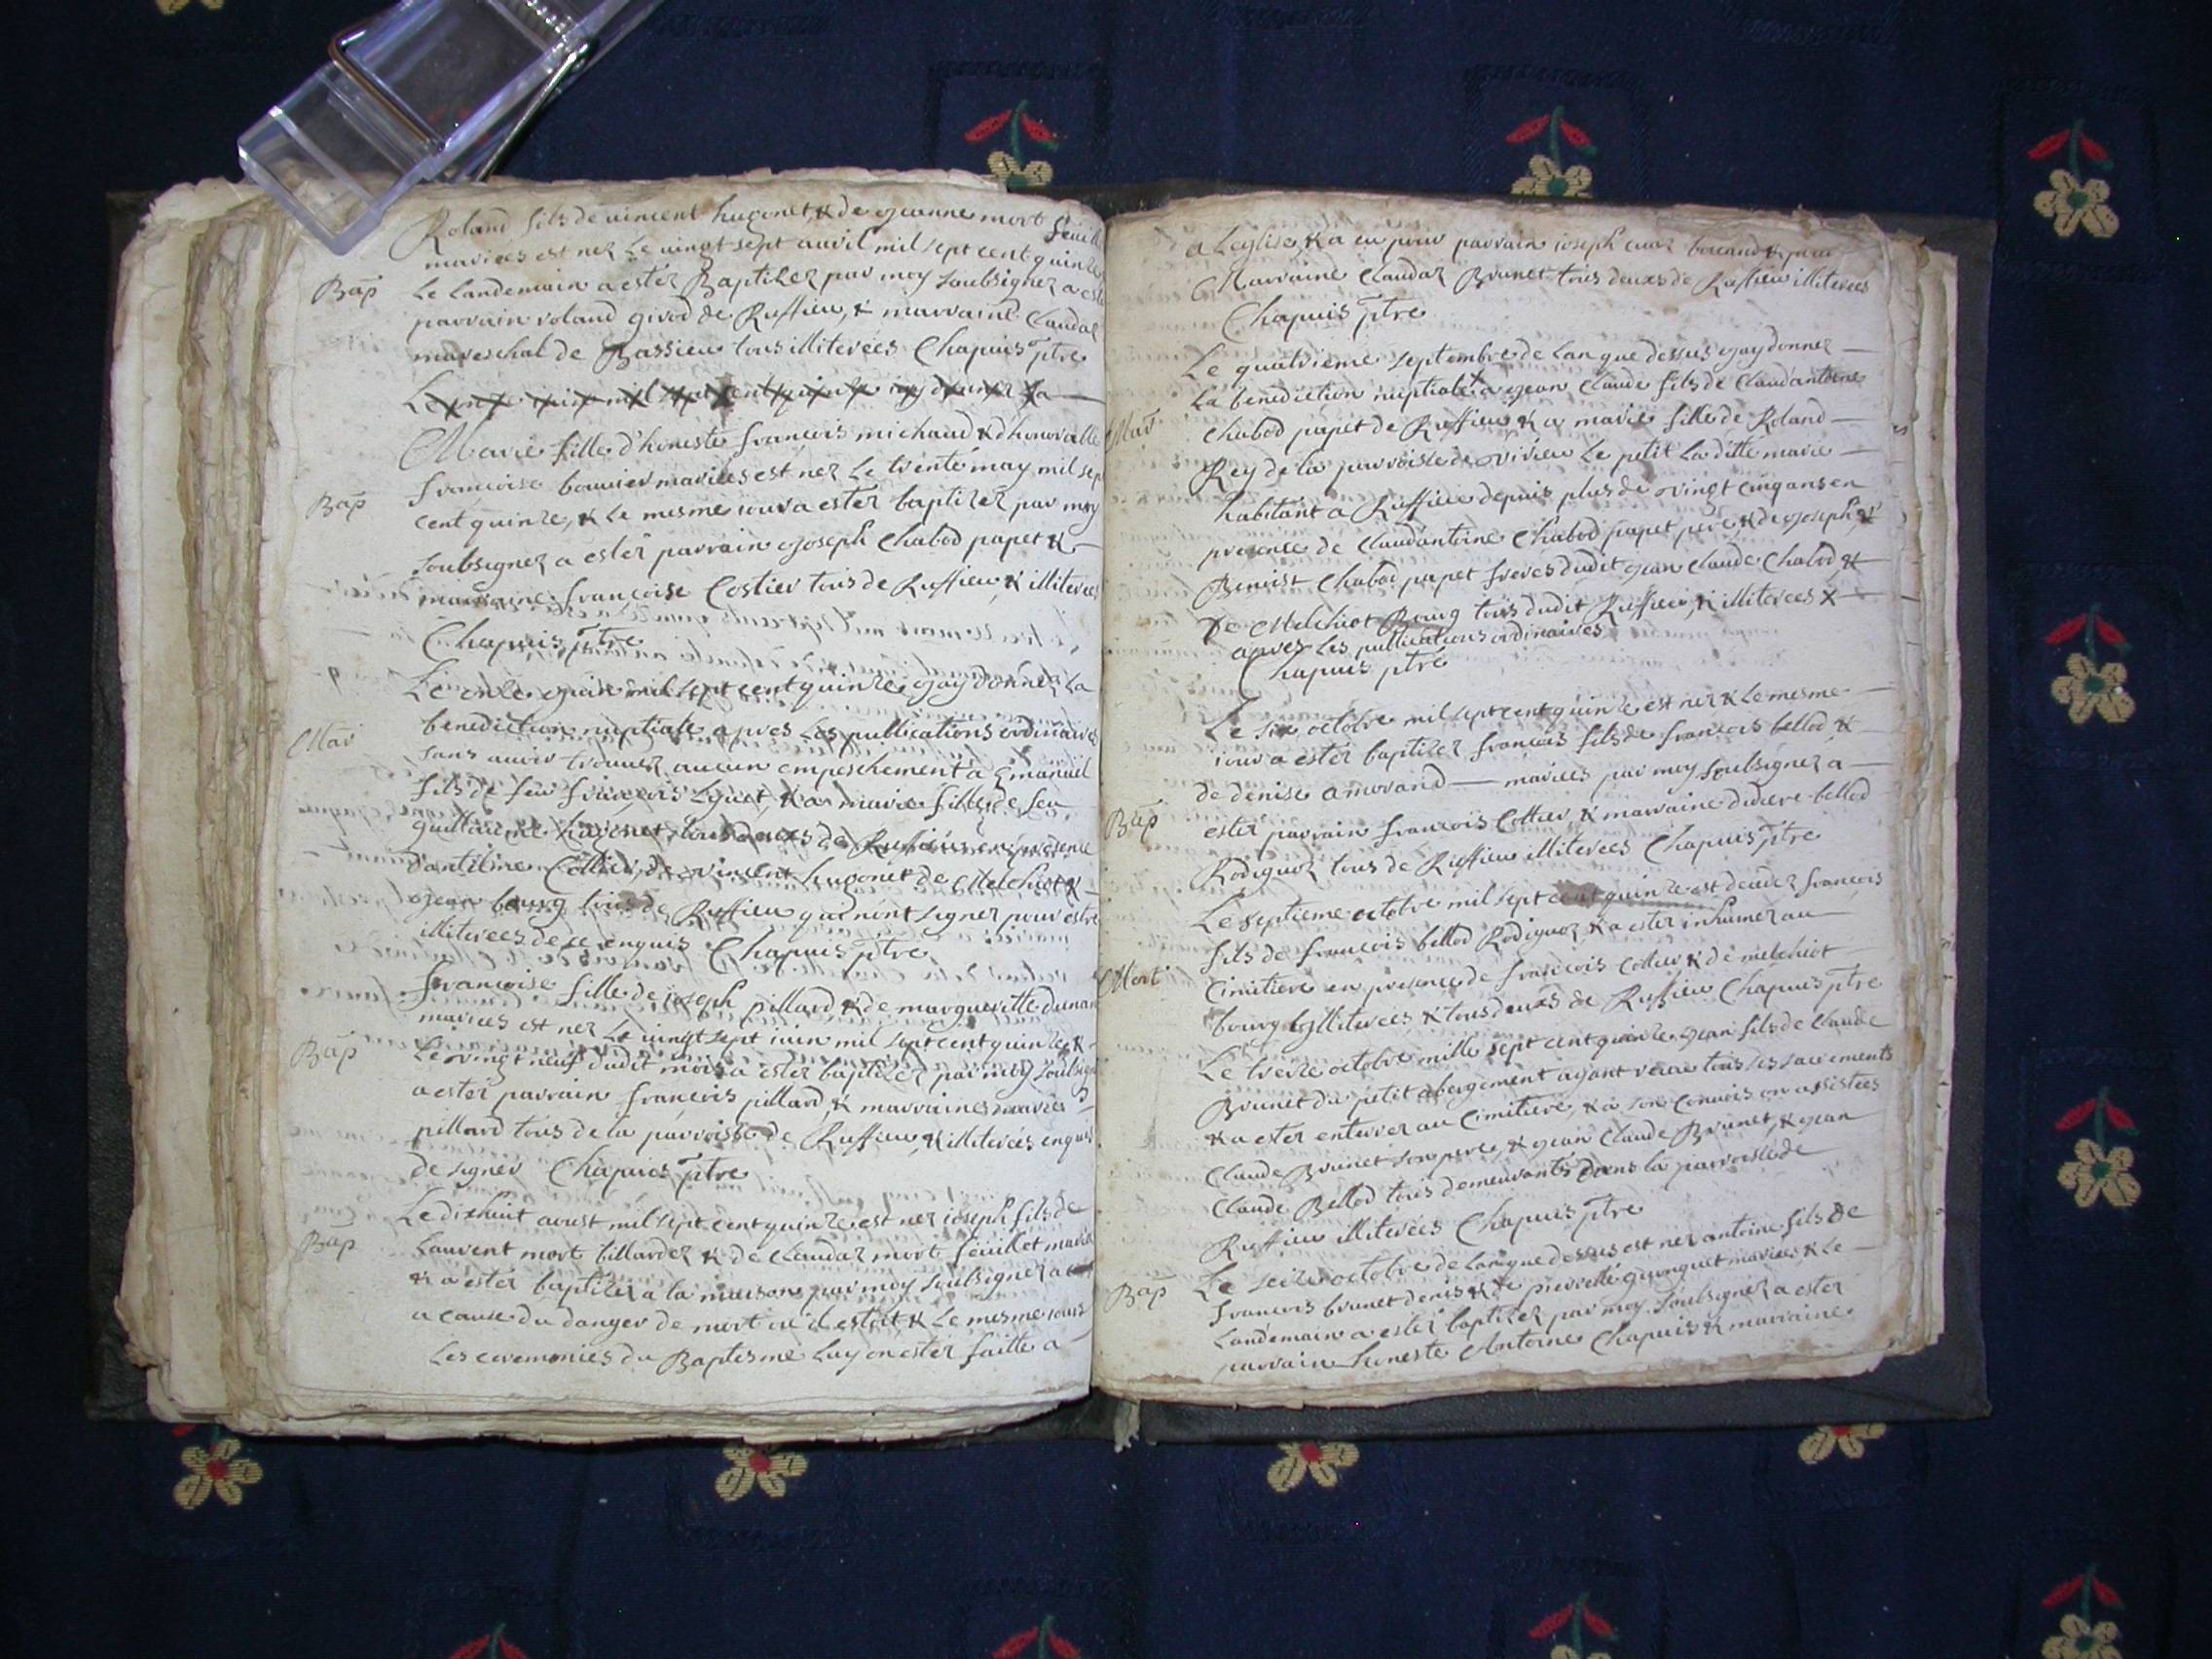 Roland fils de vincent hugonet & de jeanne mort feuill
mariees est nez Le vingt sept avril mil sept cent quinze
Bap Le Landemain a ester Baptizez par moy soubsignez a este
parrain roland givod de Ruffieu, & marraine Claudaz
mareschal de Bassieu tous illiterées Chapuis ptre
Le onze juin mil sept cent quinze ay donner La
Marie fille d'honeste francois michaud & d'honorable
francoise bouvier mariées est nez Le trente may mil sep
Bap cent quinze, & Le mesme jour a ester baptizez par moy
soubsignez a ester parrain joseph Chabod papet &
marraine francoise Costier tous de Ruffieu & illiterées
Chapuis ptre
Le onze juin mil sept cent quinze jay donnez La
Mar benediction nuptiale apres Les publications ordinaires
sans avoir trouuez aucun empeschement a Emanuel
fils de feu francois Lyuet, & a marie fille de feu
guillaume hugonet tous deuxs de Ruffieu en presence
dantelme Cottier, de vincent hugonet de Melchiot &
jean bourg tous de Ruffieu qui n'ont signer pour estre
illiterees de ce enquis Chapuis ptre
francoise fille de joseph pillard & de margueritte dunan
mariees est nez Le vingt sept juin mil sept cent quinze &
Bap Le vingt neuf dudit mois a ester baptizez par moy soubsign
a ester parrain francois pillard, & marraine marie
pillard tous de la parroisse de Ruffieu, & illiterées enquis
de signer Chapuis ptre
Le dixhuit aoust mil sept cent quinze est nez joseph fils de
Bap Laurent mort tillardez & de Claudaz mort feuillet mariés
& a ester baptizez a la maison par moy soubsignez a
a cause du danger de mort ou il estoit & Le mesme jour
Les ceremonies du Baptesme Luy on ester faitte a
a Leglise & a eu pour parrain joseph buocand & pour
Marraine Claudaz Brunet tous deuxs de Ruffieu illiterées
Chapuis ptre
Le quatrieme septembre de Lan que dessus jay donnez
La benediction nuptiale a jean Claude fils de Claudantoine
Mar Chabod papet de Ruffieu & a marie fille de Roland
Rey de la parroisse de virieu Le petit La ditte marie
habitant a Ruffieu depuis plus de vingt cinq ans en
presence de Claudantoine Chabod papet pere & de joseph &
Benoist Chabod papet freres dudit jean Claude Chabod &
De Melchiot Bourg tous dudit Ruffieu, & illiterées
apres Les publications ordinaires
Chapuis ptre
Le six octobre mil sept cent quinze est nez & Le mesme
jour a ester baptizez francois fils de francois bellod &
de denise amorand mariees par moy soubsignez a
Bap ester parrain francois Cottier, & marraine didiere bellod
Rodiguoz tous de Ruffieu illiterées Chapuis ptre
Le septieme octobre mil sept cent quinze est decedez francois
fils de francois bellod Rodiguoz & a ester inhumez au
Mort Cimitiere en presence de francois Cottier & de melchiot
bourg illiterées & tous deuxs de Ruffieu Chapuis ptre
Le treze octobre mille sept cent quinze jean fils de Claude
Brunet du petit abergement ayant receu tous Les sacrements
& a ester enterrer au Cimitiere, & a son Convois on assistees
Claude Brunet son pere, & jean Claude Brunet, & jean
Claude Bellod tous demeurants dans la parroisse de
Ruffieu illiterées Chapuis ptre
Le seize octobre de Lan que dessus est nez antoine fils de
Bap francois brunet denis & de pierrette guonguet mariees, & Le
Landemain a ester baptizez par moy soubsignez a ester
parrain honeste Antoine Chapuis & marraine